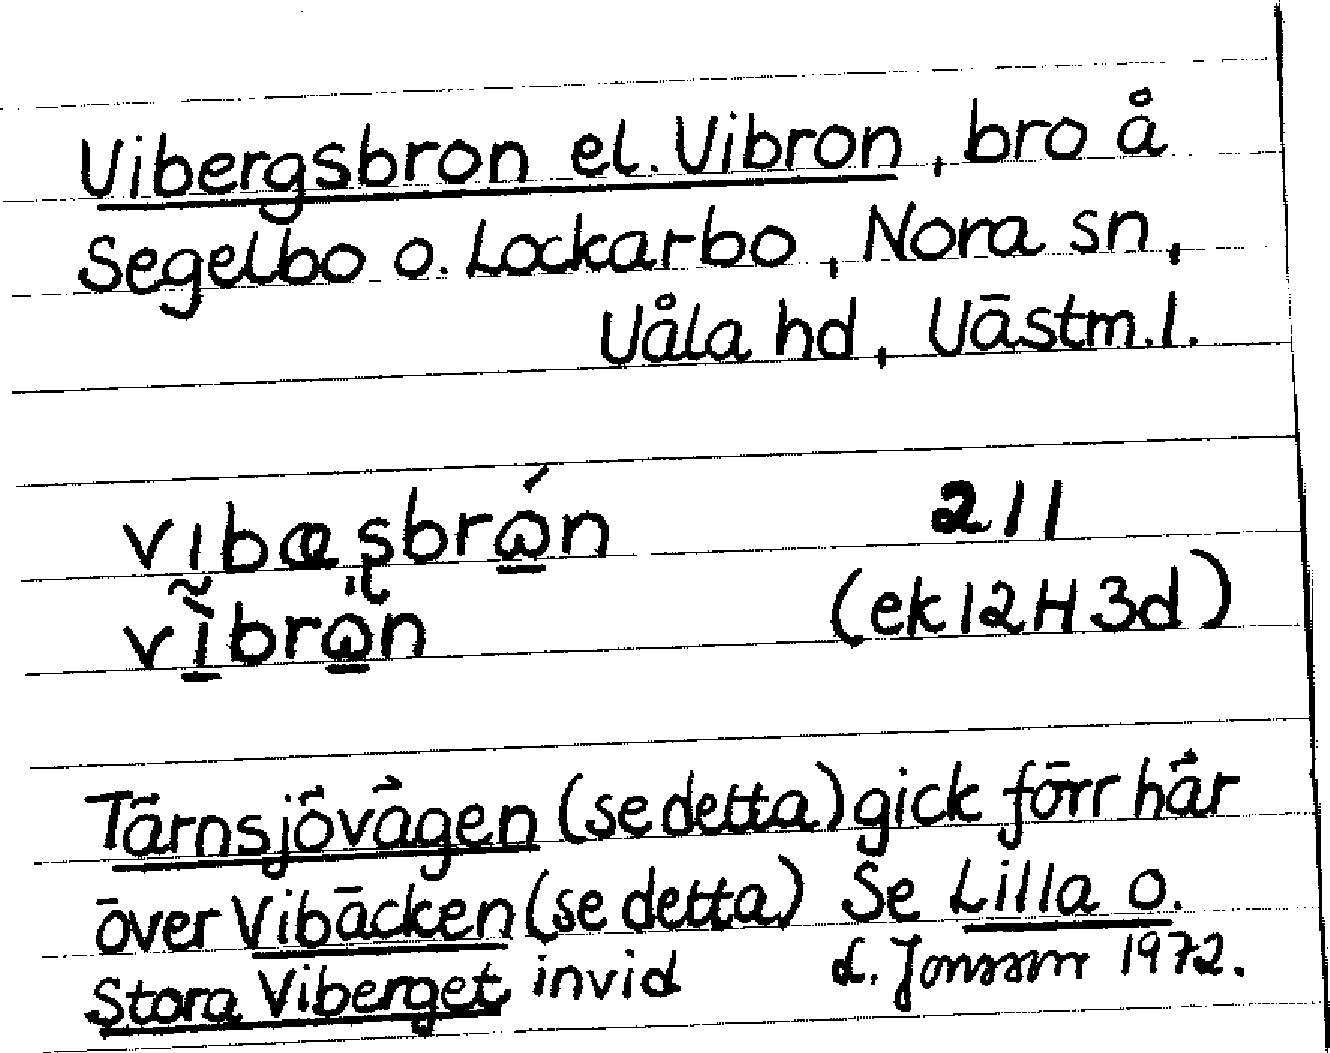 Vibergsbron el. Vibron, bro å
Segelbo o. Lockarbo, Nora sn,
Våla hd, Västm.l.
211
(ek 12H 3d)
Tärnsjövägen (se detta) gick förr här
över Vibäcken (se detta) Se Lilla o.
Stora Viberget invid
Jonsson 1972.